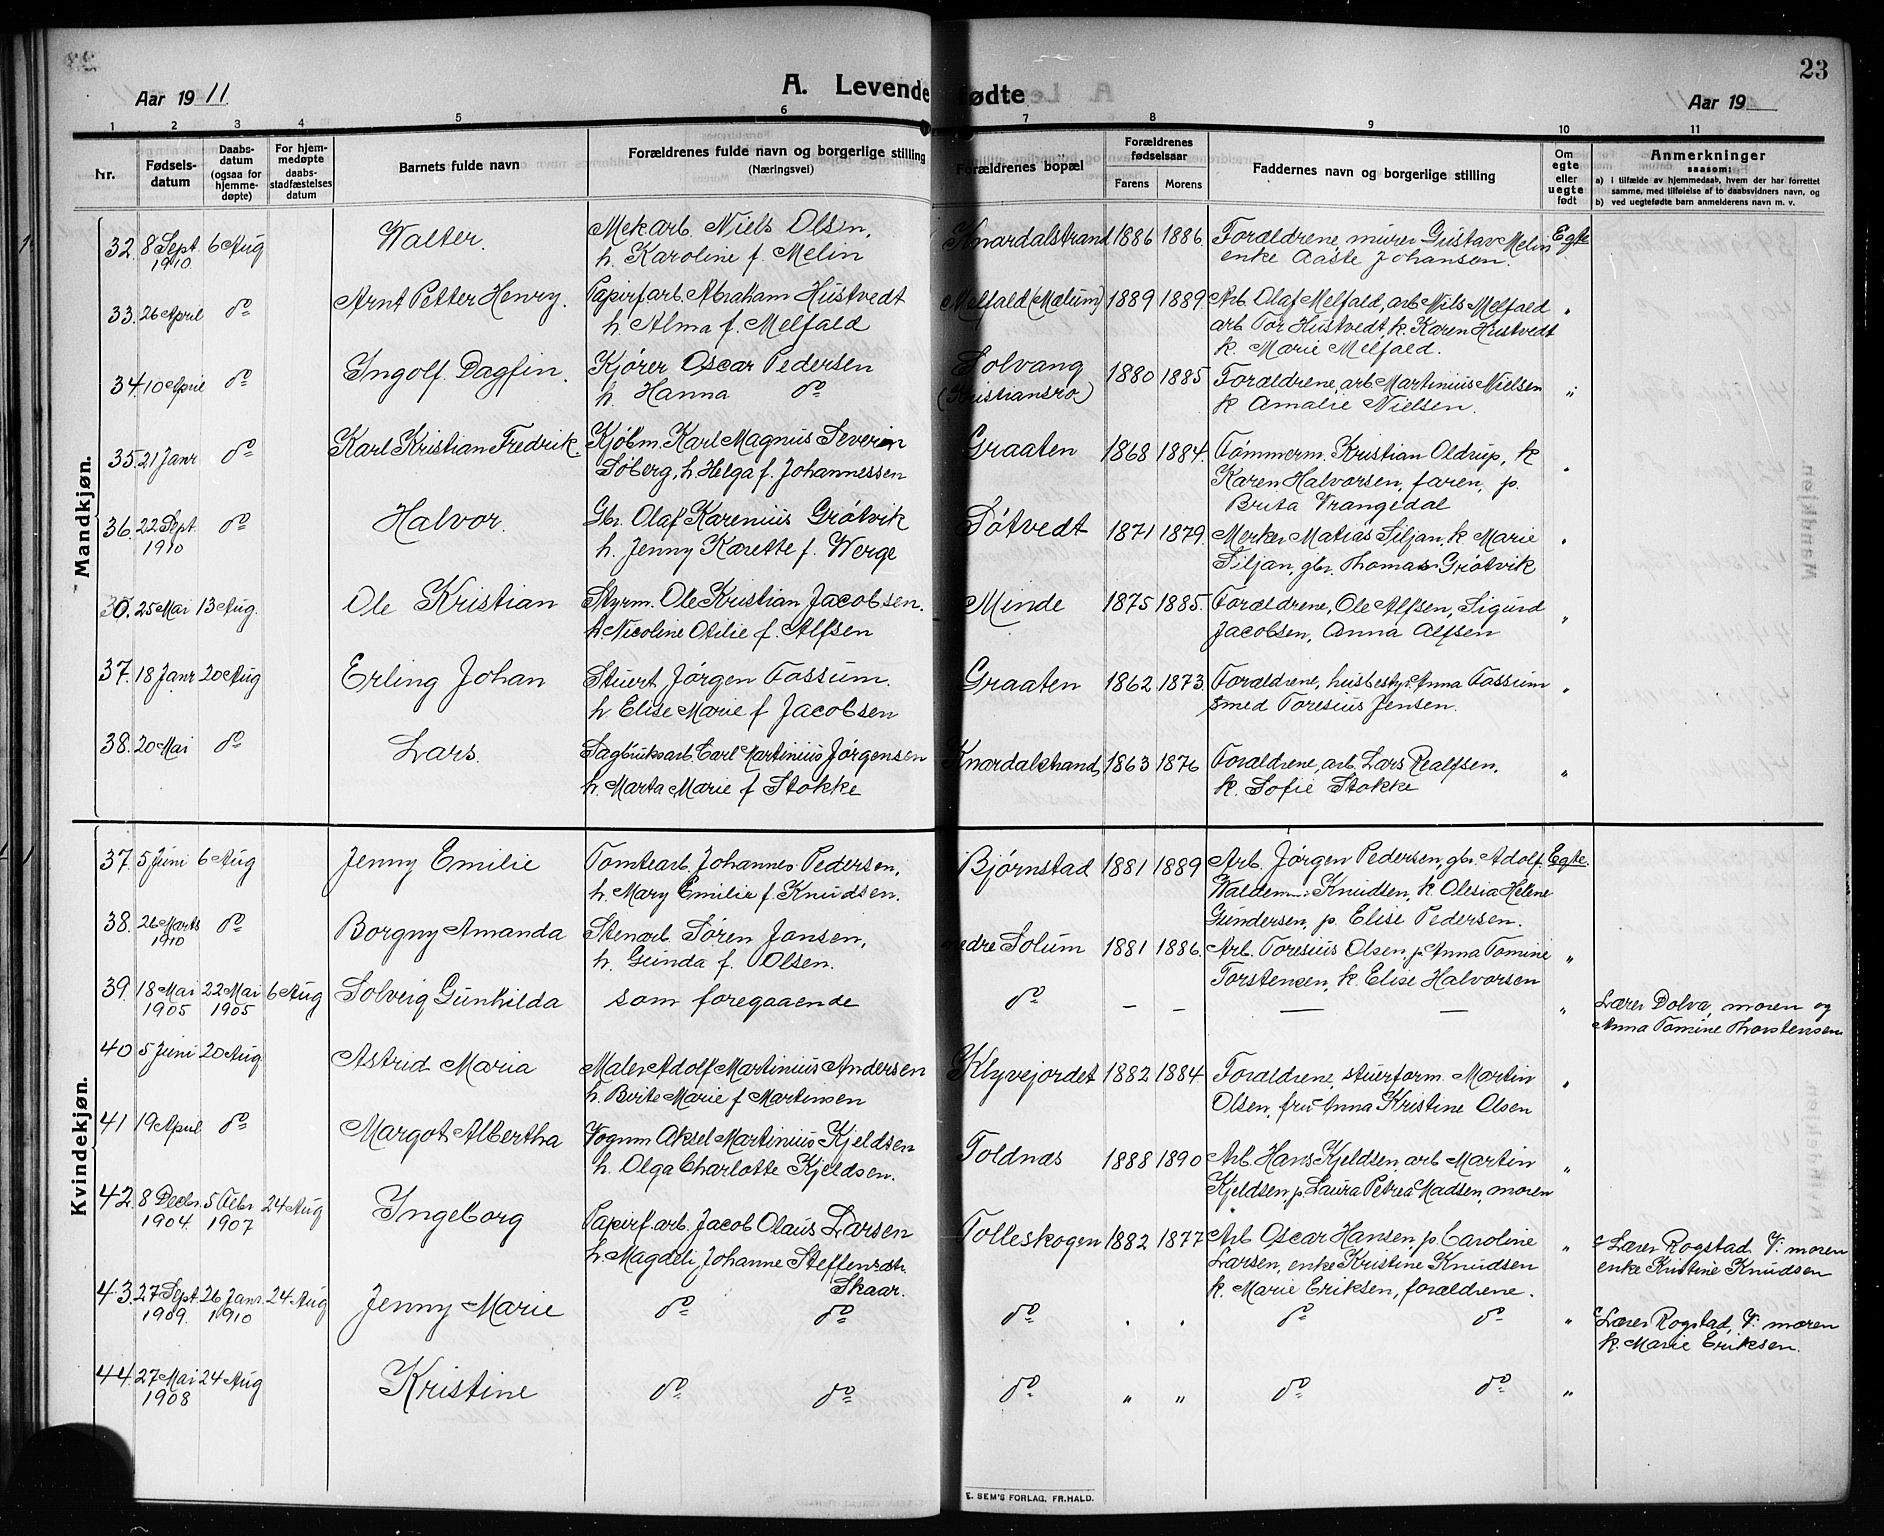 23
Aar 1911
A. Levende fødte
Aar 19
1 2 3 4 5 6 7 8 9 10 11
Nr.
Fødsels-datum
Daabs-datum (ogsaa for hjemme-døpte)
For hjem-medøpte daabs-stadfæstelses datum
Barnets fulde navn
Forældrenes fulde navn og borgerlige stilling (Næringsvei)
Forældrenes bopæl
Forældrenes fødselsaar
Farens Morens
Faddernes navn og borgerlige stilling
Om egte eller uegte født
Anmerkninger
saasom:
a) i tilfælde av hjemmedaab, hvem der har forrettet samme, med tilføielse af to daabsvidners navn, og
b) ved uegtefødte barn anmelderens navn m. v.
Mandkjøn.
32. 8 Sept. 6 Aug Walter. Mekarb. Niels Olsen, Knardalstrand 1886 1886. Forældrene, murer Gustav Melin Egte
1910 h. Karoline f. Melin enke Aaste Johansen.
33. 26 April do Arnt Petter Henry. Papirf.arb. Abraham Hustvedt Melfald (Mælum) 1889 1889. Arb. Olaf Melfald, arb. Nils Melfald "
h. Alma f. Melfald arb Tor Hustvedt k. Karen Hustvedt
k. Marie Melfald.
34. 10 April do Ingolf Dagfin. Kjører Oscar Pedersen Solvang 1880 1885 Forældrene, arb Martinius Nielsen "
h. Hanna do (Kristiansro) k Amalie Nielsen.
35. 21 Janr do Karl Kristian Fredrik. Kjøbm. Karl Magnus Severin Graaten 1868 1884. Tømmerm. Kristian Oldrup, k "
Søberg, h. Helga f. Johannessen Karen Halvorsen, faren, p.
Brita Vrangedal
36. 22 Sept. do Halvor. Gbr. Olaf Karenius Grøtvik Søtvedt 1871 1879. Merker Matias Siljan, k Marie "
1910 h. Jenny Karette f. Werge Siljan, gbr. Thomas Grøtvik
30. 25 Mai 13 Aug. Ole Kristian Styrm. Ole Kristian Jacobsen. Minde 1875 1885. Forældrene, Ole Alfsen, Sigurd "
h. Nicoline Otilie f. Alfsen Jacobsen, Anna Alfsen
37. 18 Janr 20 Aug Erling Johan Stuert Jørgen Fossum. Graaten 1862 1873. Forældrene, husbestyr. Anna Fossum "
h. Elise Marie f Jacobsen smed Toresius Jensen.
38. 20 Mai do Lars. Sagbruksarb Carl Martinius Jørgensen Knardalstrand, 1863 1876 Forældrene, arb. Lars Realfsen, "
h. Marta Marie f Stokke k. Sofie Stokke
Kvindekjøn.
37. 5 Juni 6 Aug Jenny Emilie Tomtearb. Johannes Pedersen, Bjørnstad 1881 1889 Arb. Jørgen Pedersen, gbr. Adolf Egte.
h. Mary Emilie f. Knudsen. Knudsen, k. Olesia Helene
Gundersen, p. Elise Pedersen.
38. 26 Marts do Borgny Amanda Stenarb. Søren Jansen, nedre Solum 1881 1886. Arb. Toresius Olsen, p. Anna Tomine "
1910 h. Gunda f. Olsen. Torstensen, k. Elise Halvorsen
39. 18 Mai 22 Mai 6 Aug Solveig Gunhilda som foregaaende do – – — — " Lærer Dolva, moren og
1905 1905 Anna Tomine Thorstensen
40 5 Juni 20 Aug Astrid Maria Maler Adolf Martinius Andersen Klyvejordet 1882 1884. Forældrene, stuerform. Martin "
h. Berte Marie f Martinsen Olsen, fru Anna Kristine Olsen
41 19 April do Margot Albertha Vognm Aksel Martinius Kjeldsen Toldnæs 1888 1890 Arb. Hans Kjeldsen, arb Martin "
h. Olga Charlotte Kjeldsen. Kjeldsen, p. Laura Petrea Madsen, moren
42. 8 Decbr. 5 Febr 24 Aug Ingeborg Papirf.arb. Jacob Olaus Larsen Tolleskogen 1882 1877 Arb Oscar Hansen, p. Caroline " Lærer Rogstad V: moren
1904. 1907 h. Magdeli Johanne Steffensdtr. Larsen, enke Kristine Knudsen enke Kristine Knudsen
Skaar. k. Marie Eriksen, forældrene.
43. 27 Sept. 26 Janr. 24 Aug Jenny Marie do do do " " do do " Lærer Rogstad, V: moren
1909. 1910 k. Marie Eriksen.
44. 27 Mai 24 Aug Kristine do do do " " do do "
1908
E. SEM'S FORLAG, FR.HALD.